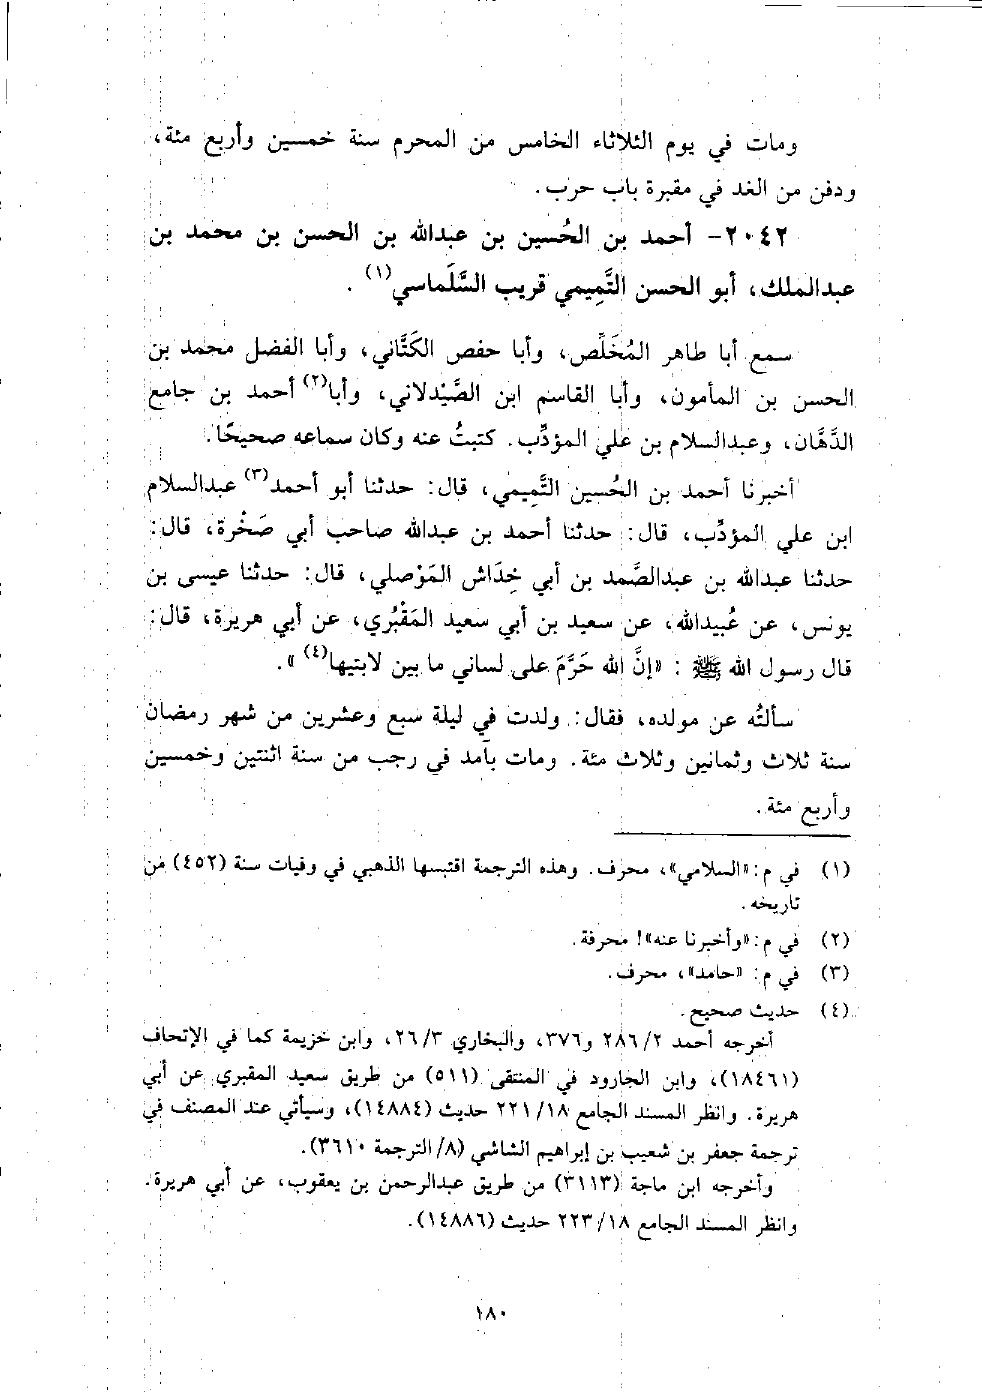 ومات في يوم الثلاثاء الخامس من المحرم سنة خمسين وأربع مئة،
ودفن من الغد في مقبرة باب حرب.
٢٠٤٢- أحمد بن الحُسين بن عبدالله بن الحسن بن محمد بن
عبدالملك، أبو الحسن التَّمِيمي قريب السَّلَماسي(١).
سمع أبا طاهر المُخَلِّص، وأبا حفص الكَتَّاني، وأبا الفضل محمد بن
الحسن بن المأمون، وأبا القاسم ابن الصَّيْدلاني، وأبا(٢) أحمد بن جامع
الدَّهَّان، وعبدالسلام بن علي المؤدِّب. كتبتُ عنه وكان سماعه صحيحًا.
أخبرنا أحمد بن الحُسين التَّمِيمي، قال: حدثنا أبو أحمد(٣) عبدالسلام
ابن علي المؤدِّب، قال: حدثنا أحمد بن عبدالله صاحب أبي صَخْرة، قال:
حدثنا عبدالله بن عبدالصَّمد بن أبي خِدَاش المَوْصلي، قال: حدثنا عيسى بن
يونس، عن عُبيدالله، عن سعيد بن أبي سعيد المَقْبُري، عن أبي هريرة، قال:
قال رسول الله ﷺ: «إنَّ الله حَرَّمَ على لساني ما بين لابتيها(٤)».
سألتُه عن مولده، فقال: ولدت في ليلة سبع وعشرين من شهر رمضان
سنة ثلاث وثمانين وثلاث مئة. ومات بآمد في رجب من سنة اثنتين وخمسين
وأربع مئة.
(١) في م: «السلامي»، محرف. وهذه الترجمة اقتبسها الذهبي في وفيات سنة (٤٥٢) من
تاريخه.
(٢) في م: «وأخبرنا عنه»! محرفة.
(٣) في م: «حامد»، محرف.
(٤) حديث صحيح.
أخرجه أحمد ٢/ ٢٨٦ و٣٧٦، والبخاري ٣/ ٢٦، وابن خزيمة كما في الإتحاف
(١٨٤٦١)، وابن الجارود في المنتقى (٥١١) من طريق سعيد المقبري عن أبي
هريرة. وانظر المسند الجامع ١٨/ ٢٢١ حديث (١٤٨٨٤)، وسيأتي عند المصنف في
ترجمة جعفر بن شعيب بن إبراهيم الشاشي (٨/ الترجمة ٣٦١٠).
وأخرجه ابن ماجة (٣١١٣) من طريق عبدالرحمن بن يعقوب، عن أبي هريرة.
وانظر المسند الجامع ١٨/ ٢٢٣ حديث (١٤٨٨٦).
١٨٠